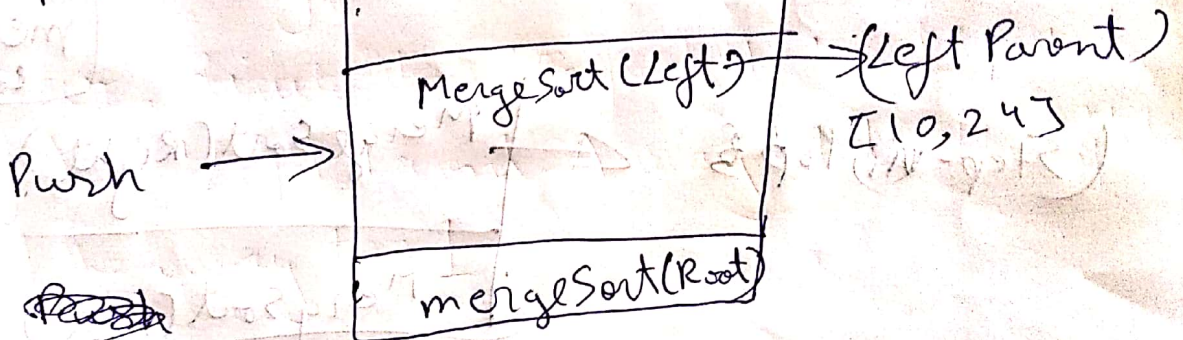 MergeSort(Left)
(Left Parent)
[10,24]
Push
mergeSort(Root)